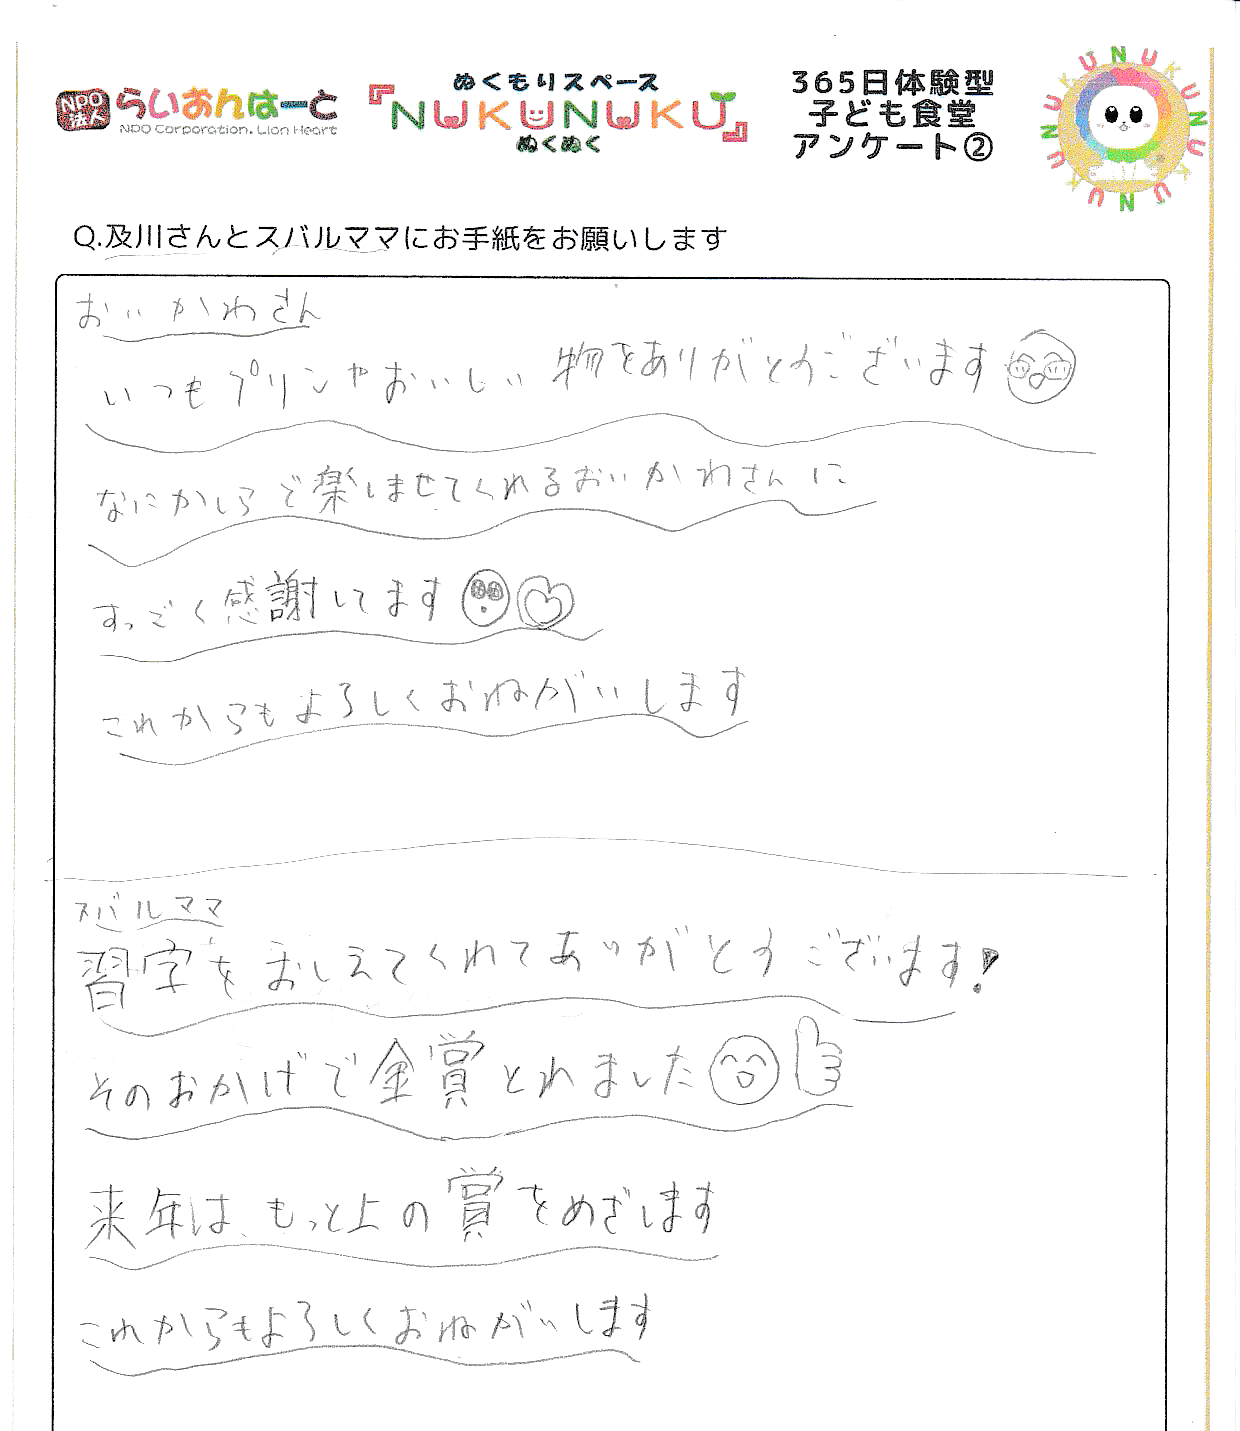 NPO法人 らいおんはーと
NPO Corporation. Lion Heart
ぬくもりスペース
『NUKUNUKU』
ぬくぬく
365日体験型
子ども食堂
アンケート②
NUKUNUKUNUKUNUKU
Q.及川さんとスバルママにお手紙をお願いします
おいかわさん
いつもプリンやおいしい物をありがとうございます
なにかしらで楽しませてくれるおいかわさんに
すっごく感謝してます
これからもよろしくおねがいします
スバルママ
習字をおしえてくれてありがとうございます!
そのおかげで金賞とれました
来年はもっと上の賞をめざします
これからもよろしくおねがいします